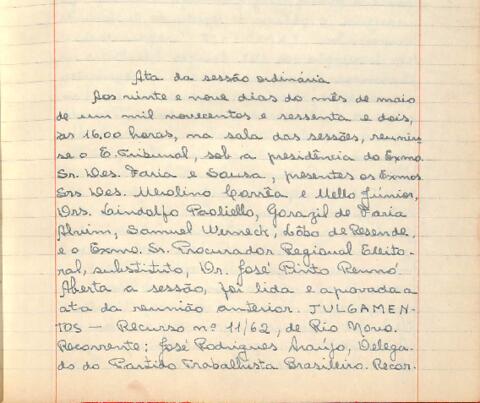 Ata da sessão ordinária
Aos vinte e nove dias do mês de maio
de um mil novecentos e sessenta e dois,
às 16.00 horas, na sala das sessões, reuniu
se o E. Tribunal, sob a presidência do Exmo.
Sr. Des. Faria e Sousa, presentes os Exmos.
Srs. Des. Merolino Corrêa e Mello Júnior,
Drs. Lindolfo Paoliello, Gorazil de Faria
Alvim, Samuel Werneck, Lôbo de Resende,
e o Exmo. Sr. Procurador Regional Eleito-
ral, substituto, Dr. José Pinto Rennó.
Aberta a sessão, foi lida e aprovada a
ata da reunião anterior. JULGAMEN-
TOS — Recurso nº 11/62, de Rio Novo.
Recorrente: José Rodrigues Araújo, Delega-
do do Partido Trabalhista Brasileiro. Recor-